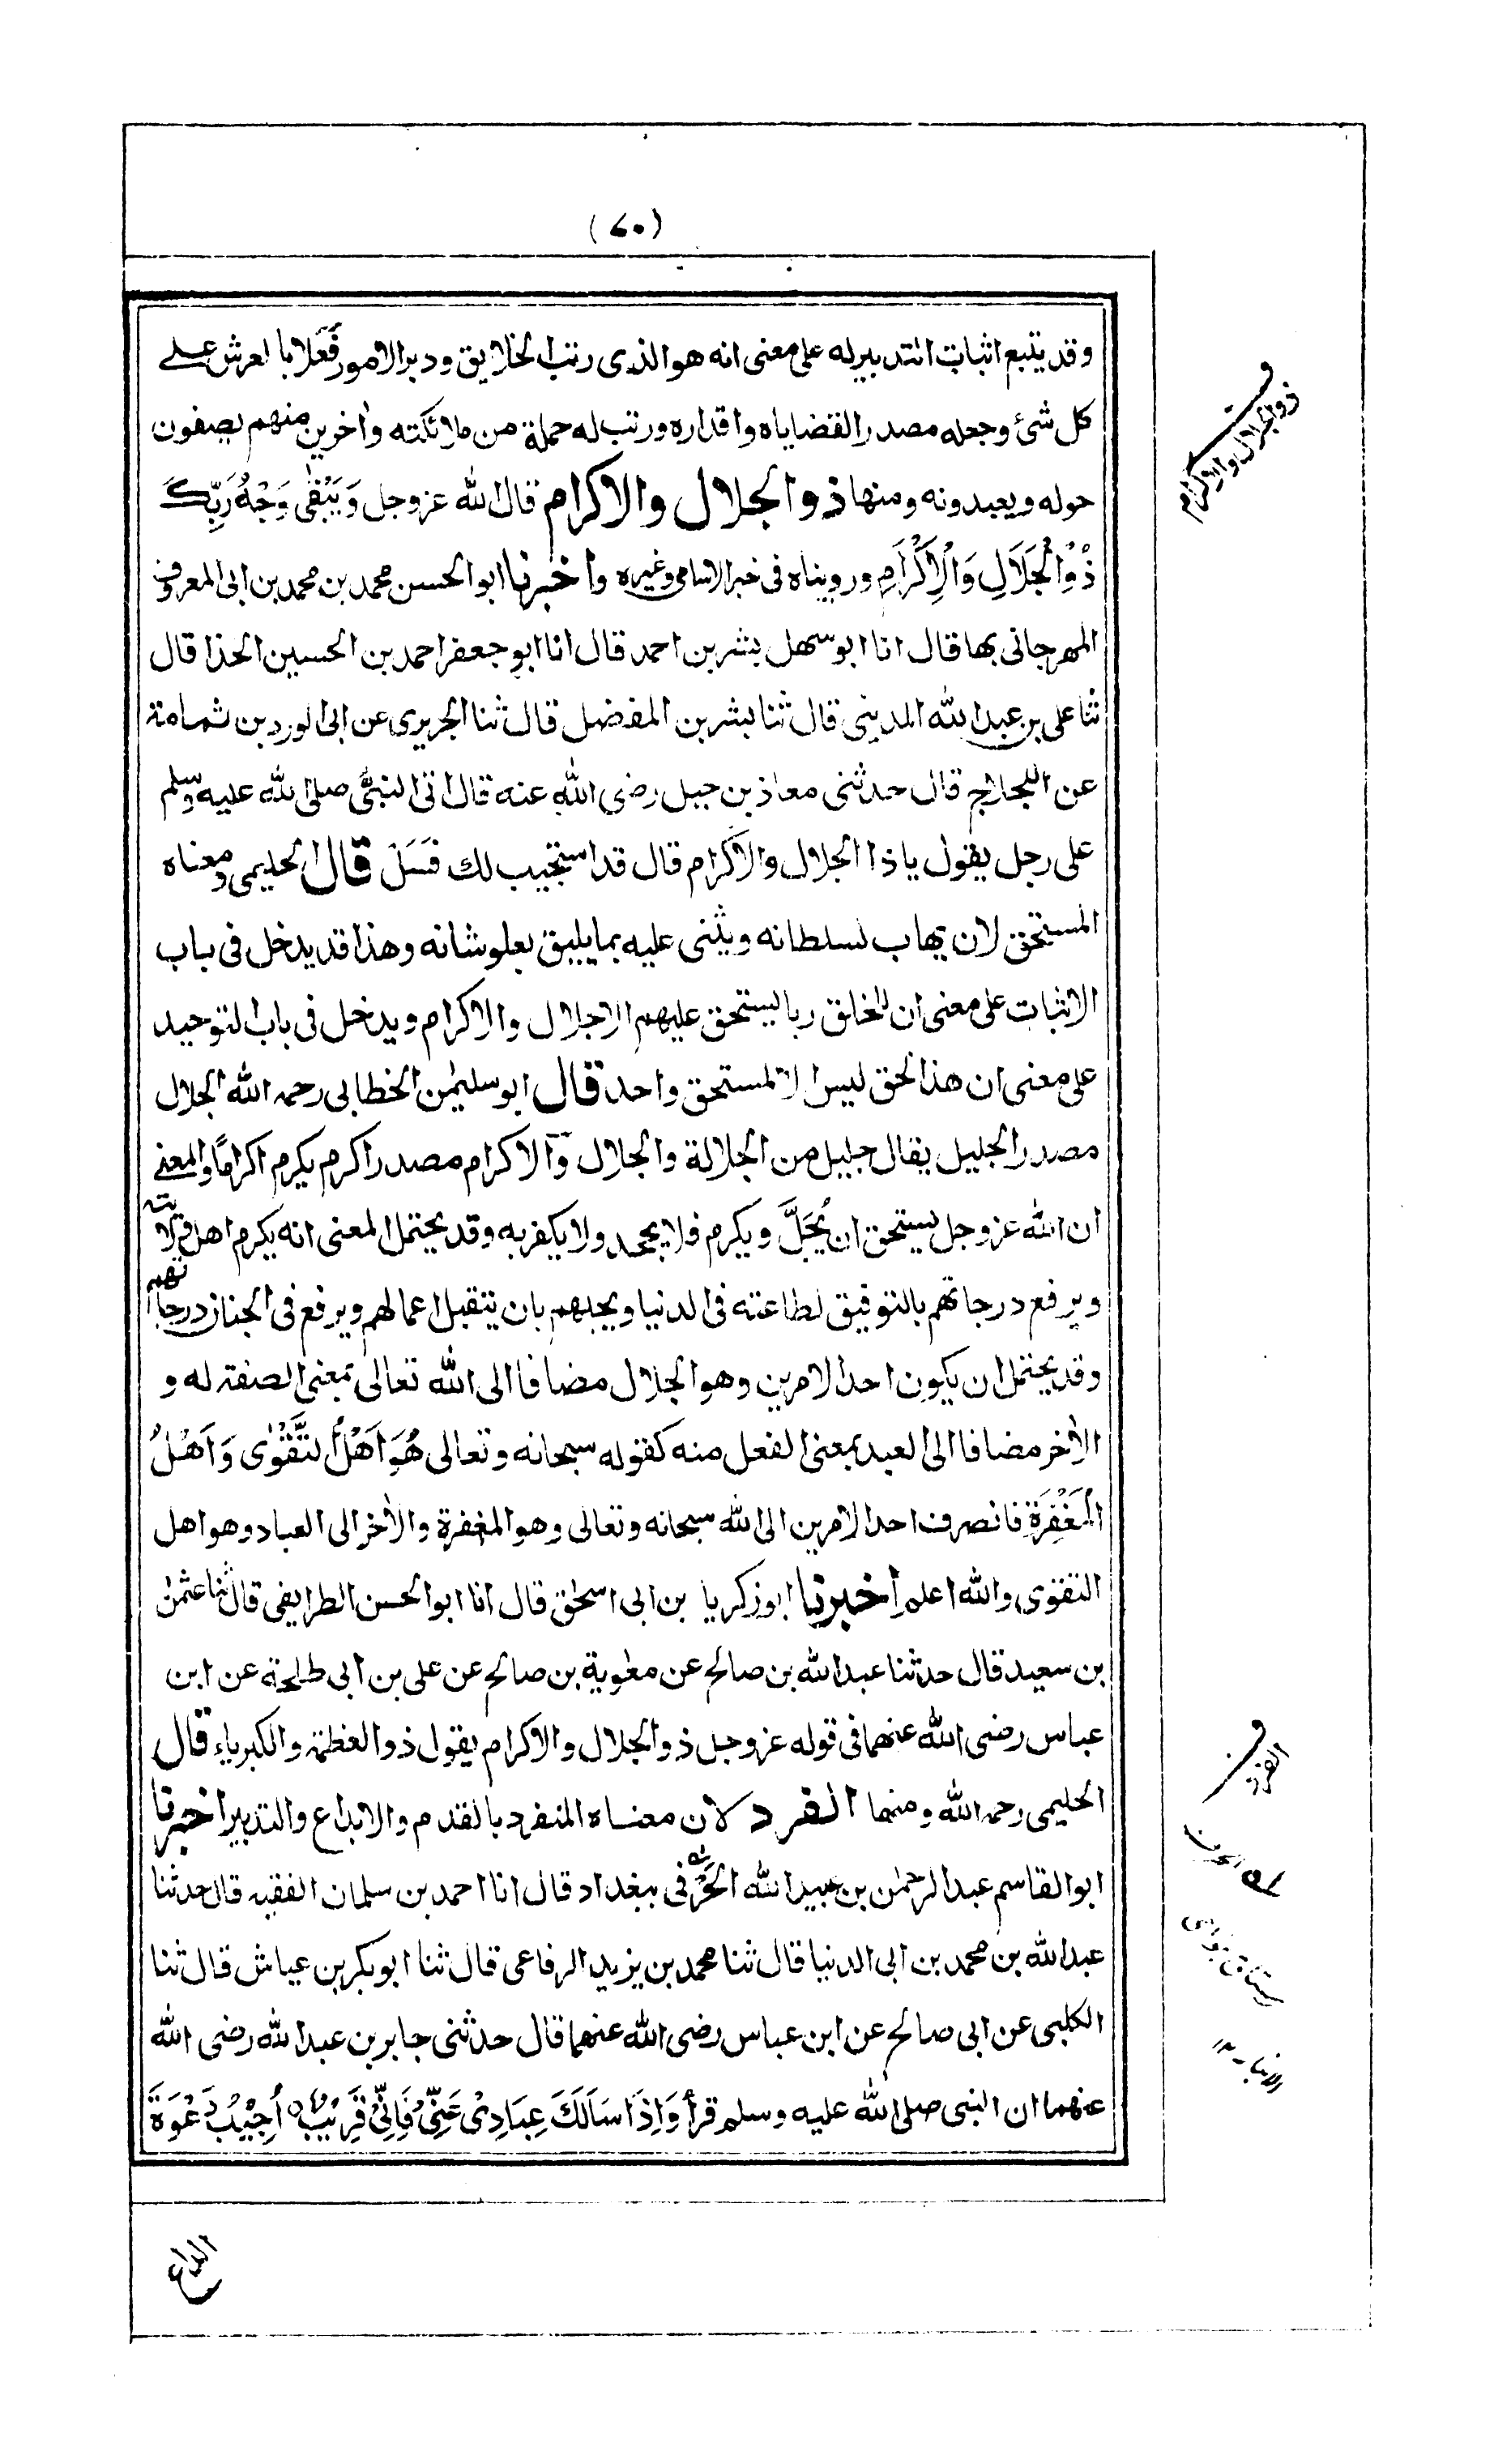 (٦٠)
وقد يتبع اثبات التدبير له على معنى انه هو الذى رتب الخلايق ودبر الامور فَعَلا بالعرش على
كل شئ وجعله مصدر القضاياه واقداره ورتب له حملة من ملائكته واٰخرين منهم يصفون
حوله ويعبدونه ومنها ذو الجلال والاكرام قال الله عز وجل وَيَبْقٰى وَجْهُ رَبِّكَ
ذُو الْجَلَالِ وَالْاِكْرَامِ ورويناه فى خبر الاسامى وغيره واخبرنا ابو الحسن محمد بن محمد بن ابى المعروف
المهرجانى بها قال انا ابو سهل بشر بن احمد قال انا ابو جعفر احمد بن الحسين الحذا قال
ثنا على بن عبد الله المدينى قال ثنا بشر بن المفضل قال ثنا الجريرى عن ابى الورد بن ثمامة
عن اللجلاج قال حدثنى معاذ بن جبل رضى الله عنه قال اتى النبىُّ صلى الله عليه وسلم
على رجل يقول ياذا الجلال والاكرام قال قد استجيب لك فَسَلْ قال الحليمى ومعناه
المستحق لان يهاب لسلطانه ويثنى عليه بما يليق بعلو شانه وهذا قد يدخل فى باب
الاثبات على معنى ان للخلق ربا يستحق عليهم الاجلال والاكرام ويدخل فى باب التوحيد
على معنى ان هذا الحق ليس الا لمستحق واحد قال ابو سليمٰن الخطابى رحمه الله الجلال
مصدر الجليل يقال جليل من الجلالة والجلال وَالاكرام مصدر اكرم يكرم اكرامًا والمعنى
ان الله عز وجل يستحق ان يُجَلَّ ويكرم فلا يجحد ولا يكفر به وقد يحتمل المعنى انه يكرم اهل ولايته
ويرفع درجاتهم بالتوفيق لطاعته فى الدنيا ويجلهم بان يتقبل اعمالهم ويرفع فى الجنان درجاتهم
وقد يحتمل ان يكون احد الامرين وهو الجلال مضافا الى الله تعالى بمعنى الصفة له و
الاٰخر مضافا الى العبد بمعنى الفعل منه كقوله سبحانه وتعالى هُوَ اَهْلُ التَّقْوٰى وَاَهْلُ
الْمَغْفِرَةِ فانصرف احد الامرين الى الله سبحانه وتعالى وهو المغفرة والاٰخر الى العباد وهو اهل
التقوى والله اعلم اخبرنا ابو زكريا بن ابى اسحٰق قال انا ابو الحسن الطرايفى قال ثنا عثمٰن
بن سعيد قال حدثنا عبد الله بن صالح عن معٰوية بن صالح عن على بن ابى طلحة عن ابن
عباس رضى الله عنهما فى قوله عز وجل ذو الجلال والاكرام يقول ذو العظمة والكبرياء قال
الحليمى رحمه الله ومنها الفرد لان معناه المنفرد بالقدم والابداع والتدبير اخبرنا
ابو القاسم عبد الرحمٰن بن عبيد الله الحُرْفى ببغداد قال انا احمد بن سلمان الفقيه قال حدثنا
عبد الله بن محمد بن ابى الدنيا قال ثنا محمد بن يزيد الرفاعى قال ثنا ابو بكر بن عياش قال ثنا
الكلبى عن ابى صالح عن ابن عباس رضى الله عنهما قال حدثنى جابر بن عبد الله رضى الله
عنهما ان النبى صلى الله عليه وسلم قرأ وَاِذَا سَاَلَكَ عِبَادِىْ عَنِّىْ فَاِنِّىْ قَرِيْبٌ اُجِيْبُ دَعْوَةَ
ذو الجلال والاكرام
الفرد
الداع